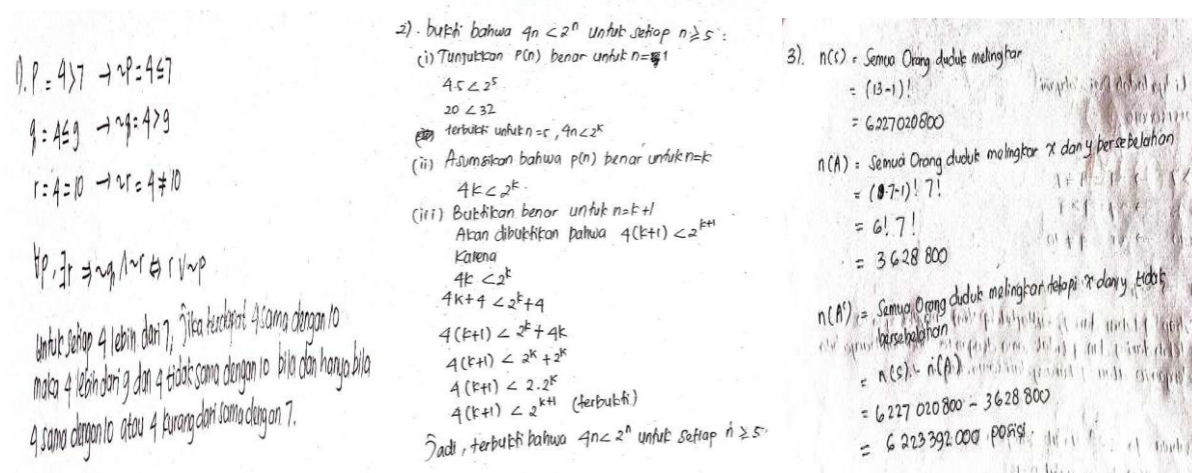 1). p = 4 > 7 → ~p = 4 ≤ 7
q = 4 ≤ 9 → ~q = 4 > 9
r = 4 = 10 → ~r = 4 ≠ 10
∀p, ∃r ⇒ ~q ∧ ~r ⇔ r ∨ ~p
Untuk setiap 4 lebih dari 7, jika terdapat 4 sama dengan 10
maka 4 lebih dari 9 dan 4 tidak sama dengan 10 bila dan hanya bila
4 sama dengan 10 atau 4 kurang dari sama dengan 7.
2). bukti bahwa 4n < 2ⁿ untuk setiap n ≥ 5 :
(i) Tunjukkan P(n) benar untuk n = 1
4.5 < 2⁵
20 < 32
terbukti untuk n = 5, 4n < 2ⁿ
(ii) Asumsikan bahwa p(n) benar untuk n=k
4k < 2ᵏ.
(iii) Buktikan benar untuk n=k+1
Akan dibuktikan bahwa 4(k+1) < 2ᵏ⁺¹
Karena
4k < 2ᵏ
4k+4 < 2ᵏ+4
4(k+1) < 2ᵏ+4k
4(k+1) < 2ᵏ+2ᵏ
4(k+1) < 2.2ᵏ
4(k+1) < 2ᵏ⁺¹ (terbukti)
Jadi, terbukti bahwa 4n < 2ⁿ untuk setiap n ≥ 5
3). n(S) = Semua Orang duduk melingkar
= (13-1)!
= 6227020800
n(A) = Semua Orang duduk melingkar x dan y bersebelahan
= (7-1)! 7!
= 6! 7!
= 3628 800
n(A') = Semua Orang duduk melingkar tetapi x dan y tidak
bersebelahan
= n(S) - n(A)
= 6227 020 800 - 3628 800
= 6 223392 000 posisi